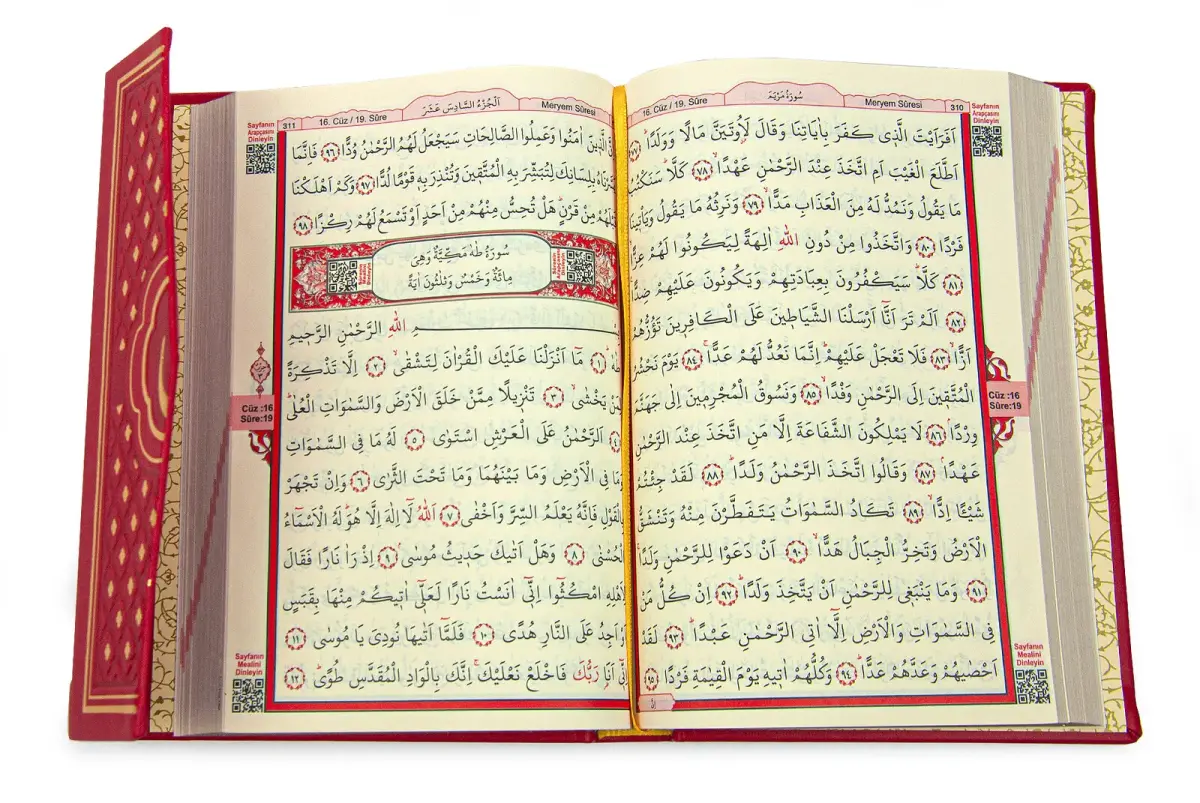 310 Meryem Sûresi سُورَةُ مَرْيَمَ 16. Cüz / 19. Sûre
Sayfanın
Arapçasını
Dinleyin
اَفَرَاَيْتَ الَّذٖي كَفَرَ بِاٰيَاتِنَا وَقَالَ لَاُوتَيَنَّ مَالًا وَوَلَدًاؕ ﴿٧٧﴾
اَطَّلَعَ الْغَيْبَ اَمِ اتَّخَذَ عِنْدَ الرَّحْمٰنِ عَهْدًاۙ ﴿٧٨﴾ كَلَّاؕ سَنَكْتُبُ
مَا يَقُولُ وَنَمُدُّ لَهُ مِنَ الْعَذَابِ مَدًّاۙ ﴿٧٩﴾ وَنَرِثُهُ مَا يَقُولُ وَيَأْتٖينَا
فَرْدًا ﴿٨٠﴾ وَاتَّخَذُوا مِنْ دُونِ اللّٰهِ اٰلِهَةً لِيَكُونُوا لَهُمْ عِزًّاۙ
﴿٨١﴾ كَلَّاؕ سَيَكْفُرُونَ بِعِبَادَتِهِمْ وَيَكُونُونَ عَلَيْهِمْ ضِدًّاࣖ
﴿٨٢﴾ اَلَمْ تَرَ اَنَّٓا اَرْسَلْنَا الشَّيَاطٖينَ عَلَى الْكَافِرٖينَ تَؤُزُّهُمْ
اَزًّاۙ ﴿٨٣﴾ فَلَا تَعْجَلْ عَلَيْهِمْؕ اِنَّمَا نَعُدُّ لَهُمْ عَدًّاۚ ﴿٨٤﴾ يَوْمَ نَحْشُرُ
الْمُتَّقٖينَ اِلَى الرَّحْمٰنِ وَفْدًاۙ ﴿٨٥﴾ وَنَسُوقُ الْمُجْرِمٖينَ اِلٰى جَهَنَّمَ
وِرْدًاۘ ﴿٨٦﴾ لَا يَمْلِكُونَ الشَّفَاعَةَ اِلَّا مَنِ اتَّخَذَ عِنْدَ الرَّحْمٰنِ
عَهْدًاۘ ﴿٨٧﴾ وَقَالُوا اتَّخَذَ الرَّحْمٰنُ وَلَدًاؕ ﴿٨٨﴾ لَقَدْ جِئْتُمْ
شَيْـًٔا اِدًّاۙ ﴿٨٩﴾ تَكَادُ السَّمٰوَاتُ يَتَفَطَّرْنَ مِنْهُ وَتَنْشَقُّ
الْاَرْضُ وَتَخِرُّ الْجِبَالُ هَدًّاۙ ﴿٩٠﴾ اَنْ دَعَوْا لِلرَّحْمٰنِ وَلَدًاۚ
﴿٩١﴾ وَمَا يَنْبَغٖي لِلرَّحْمٰنِ اَنْ يَتَّخِذَ وَلَدًاؕ ﴿٩٢﴾ اِنْ كُلُّ مَنْ
فِي السَّمٰوَاتِ وَالْاَرْضِ اِلَّٓا اٰتِي الرَّحْمٰنِ عَبْدًاؕ ﴿٩٣﴾ لَقَدْ
اَحْصٰيهُمْ وَعَدَّهُمْ عَدًّاؕ ﴿٩٤﴾ وَكُلُّهُمْ اٰتٖيهِ يَوْمَ الْقِيٰمَةِ فَرْدًا ﴿٩٥﴾
Cüz :16
Sûre:19
Sayfanın
Mealini
Dinleyin
Meryem Sûresi اَلْجُزْءُ السَّادِسَ عَشَرَ 16. Cüz / 19. Sûre 311
Sayfanın
Arapçasını
Dinleyin
اِنَّ الَّذٖينَ اٰمَنُوا وَعَمِلُوا الصَّالِحَاتِ سَيَجْعَلُ لَهُمُ الرَّحْمٰنُ وُدًّا ﴿٩٦﴾ فَاِنَّمَا
يَسَّرْنَاهُ بِلِسَانِكَ لِتُبَشِّرَ بِهِ الْمُتَّقٖينَ وَتُنْذِرَ بِهٖ قَوْمًا لُدًّا ﴿٩٧﴾ وَكَمْ اَهْلَكْنَا
قَبْلَهُمْ مِنْ قَرْنٍؕ هَلْ تُحِسُّ مِنْهُمْ مِنْ اَحَدٍ اَوْ تَسْمَعُ لَهُمْ رِكْزًا ﴿٩٨﴾
سُورَةُ طٰهٰ مَكِّيَّةٌ وَهِيَ
مِائَةٌ وَخَمْسٌ وَثَلٰثُونَ اٰيَةً
Sayfanın
Arapçasını
Dinleyin
Sayfanın
Mealini
Dinleyin
بِسْمِ اللّٰهِ الرَّحْمٰنِ الرَّحٖيمِ
طٰهٰۚ ﴿١﴾ مَٓا اَنْزَلْنَا عَلَيْكَ الْقُرْاٰنَ لِتَشْقٰىۙ ﴿٢﴾ اِلَّا تَذْكِرَةً
لِمَنْ يَخْشٰىۙ ﴿٣﴾ تَنْزٖيلًا مِمَّنْ خَلَقَ الْاَرْضَ وَالسَّمٰوَاتِ الْعُلٰىؕ
﴿٤﴾ اَلرَّحْمٰنُ عَلَى الْعَرْشِ اسْتَوٰى ﴿٥﴾ لَهُ مَا فِي السَّمٰوَاتِ
وَمَا فِي الْاَرْضِ وَمَا بَيْنَهُمَا وَمَا تَحْتَ الثَّرٰى ﴿٦﴾ وَاِنْ تَجْهَرْ
بِالْقَوْلِ فَاِنَّهُ يَعْلَمُ السِّرَّ وَاَخْفٰى ﴿٧﴾ اَللّٰهُ لَٓا اِلٰهَ اِلَّا هُوَؕ لَهُ الْاَسْمَٓاءُ
الْحُسْنٰى ﴿٨﴾ وَهَلْ اَتٰيكَ حَدٖيثُ مُوسٰىۘ ﴿٩﴾ اِذْ رَاٰ نَارًا فَقَالَ
لِاَهْلِهِ امْكُثُٓوا اِنّٖٓي اٰنَسْتُ نَارًا لَعَلّٖٓي اٰتٖيكُمْ مِنْهَا بِقَبَسٍ
اَوْ اَجِدُ عَلَى النَّارِ هُدًى ﴿١٠﴾ فَلَمَّٓا اَتٰيهَا نُودِيَ يَا مُوسٰى ﴿١١﴾
اِنّٖٓي اَنَا۬ رَبُّكَ فَاخْلَعْ نَعْلَيْكَۚ اِنَّكَ بِالْوَادِ الْمُقَدَّسِ طُوًىؕ ﴿١٢﴾
Cüz :16
Sûre:19
Sayfanın
Mealini
Dinleyin